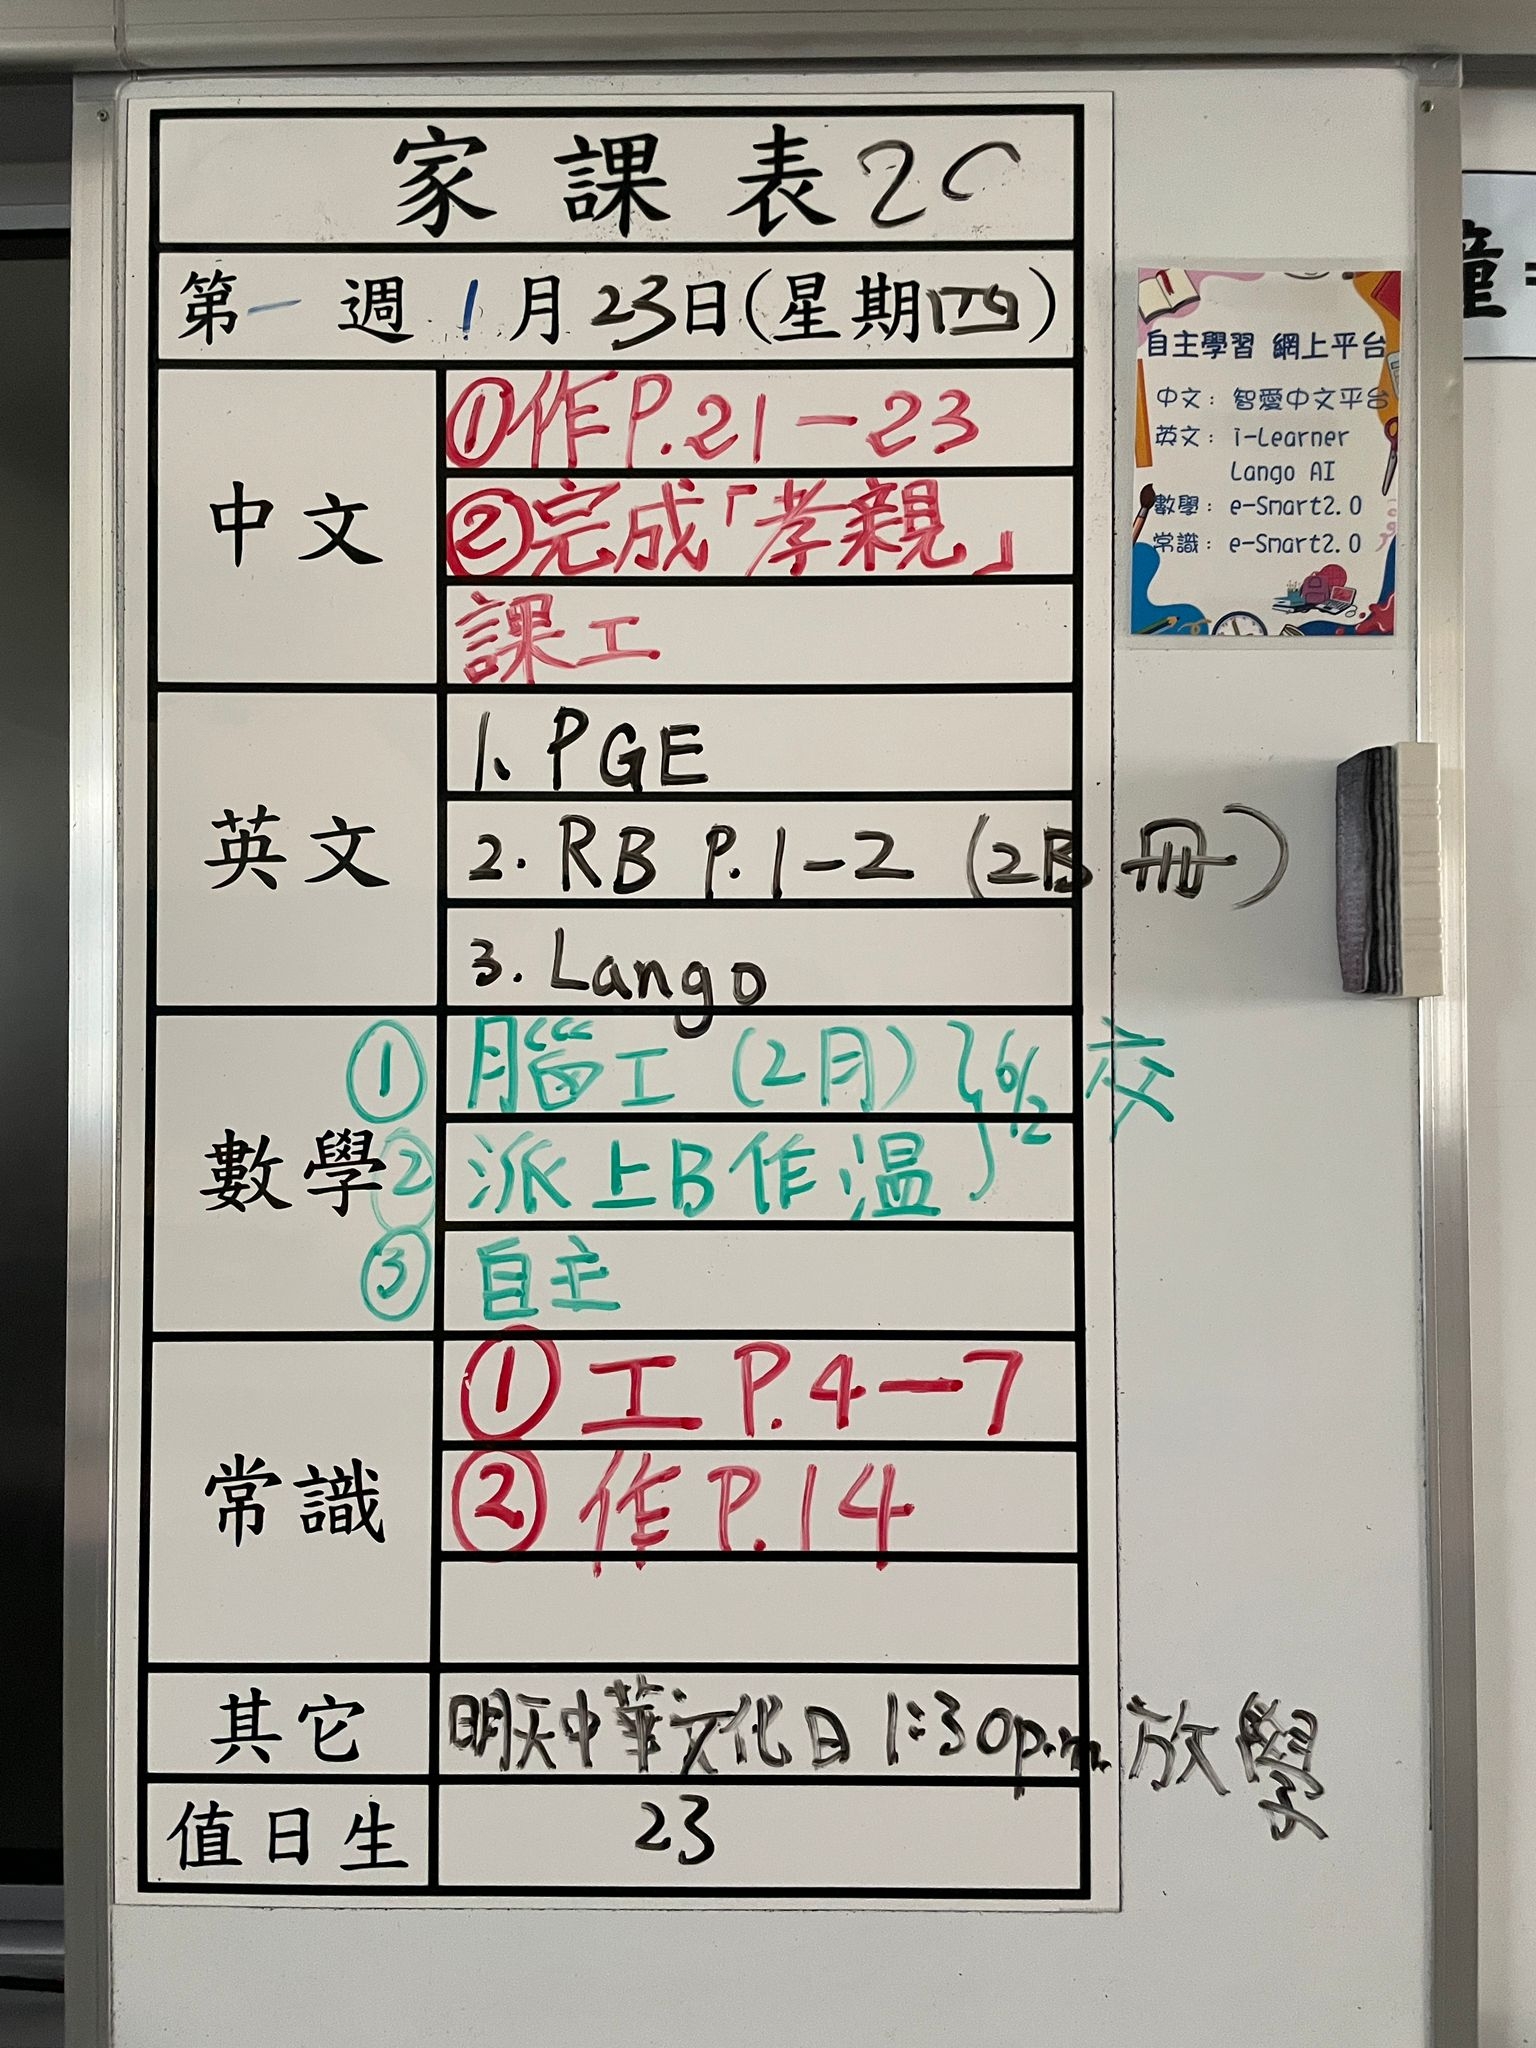 家課表 2C
第一週 1月23日(星期四)
中文
①作P.21-23
②完成「孝親」
課工
英文
1. PGE
2. RB P.1-2 (2B冊)
3. Lango
數學
① 腦工 (2月) } 6/2 交
② 派上B作温
③ 自主
常識
① 工 P.4-7
② 作 P.14
其它
明天中華文化日 1:30p.m. 放學
值日生
23
自主學習 網上平台
中文：智愛中文平台
英文：i-Learner
Lango AI
數學：e-Smart2.0
常識：e-Smart2.0